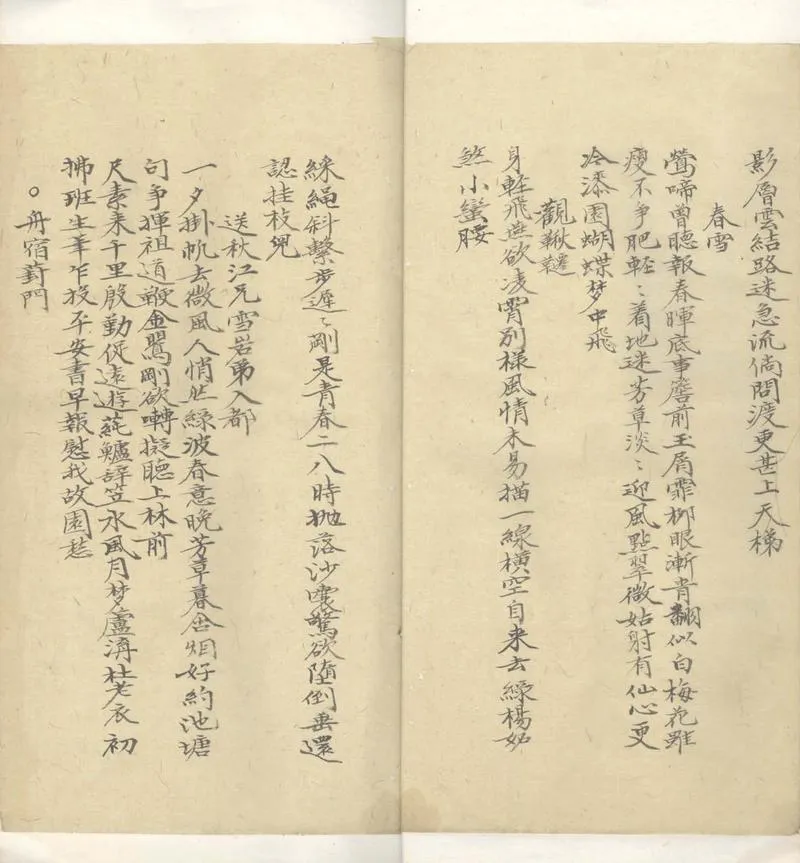 影層雲結路迷急流倘問渡更甚上天梯
春雪
鶯啼曾聽報春暉底事簷前玉屑霏柳眼漸青翻似白梅花雖
瘦不爭肥輕〻着地迷芳草淡〻迎風點翠微姑射有仙心更
冷漆園蝴蝶梦中飛
觀鞦韆
身輕飛燕欲凌霄別樣風情未易描一線橫空自来去綠楊妬
煞小蠻腰
綵繩斜繫步遲〻剛是青春二八時抛落沙囊驚欲墮倒垂還
認挂枝兒
送秋江兄雪岩弟入都
一夕掛帆去微風人悄然綠波春意晚芳草暮含烟好約池塘
句爭揮祖道鞭金鶯剛欲囀擬聽上林前
尺素来千里殷勤促遠遊蒓鱸辞笠水風月梦蘆溝杜老衣初
拂班生筆乍投平安書早報慰我故園愁
○舟宿葑門